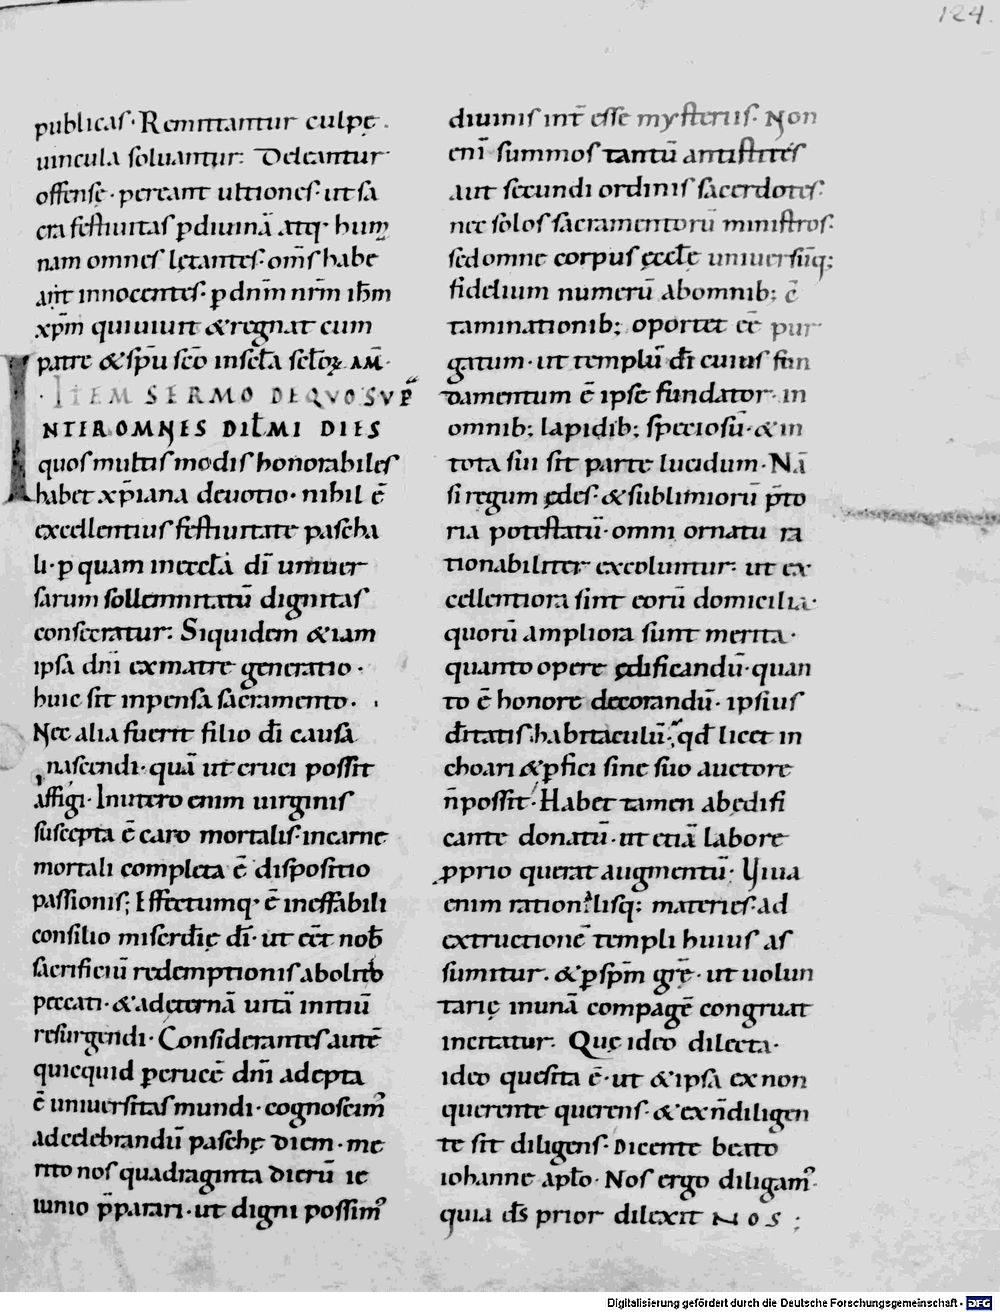 124.
publicas· Remittantur culpę.
uincula soluantur: Deleantur
offensę· pereant ultiones· ut sa
cra festiuitas p̱ diuinā atq· hum̱
nam omnes lętantes· om̄s habe
ant innocentes· p̱ dnm̄ nrm̄ ihm̄
xp̄m qui uiuit & regnat cum
patre & sp̄u sc̄o in scl̄a scl̄oꝝ AM̄·
ITEM SERMO DE QVO SVP̄
INTER OMNES DIL̄MI DIES
quos multis modis honorabiles
habet xp̄iana deuotio· nihil ē
excellentius festiuitate pascha
li· p̱ quam in eccl̄a dī uniuer
sarum sollemnitatū dignitas
consecratur: Siquidem & iam
ipsa dnī ex matre generatio·
huic sit inpensa sacramento·
Nec alia fuerit filio dī causa
nascendi· quā ut cruci possit
affigi· In utero enim uirginis
suscepta ē caro mortalis· in carne
mortali completa ē dispositio
passionis; Effectumq· ē ineffabili
consilio misc̄dię dī· ut eēt nob̄
sacrificiū redemptionis abolitio
peccati· & ad ęternā uitā initiū
resurgendi· Considerantes autē
quicquid p̱ crucē dnī adepta
ē uniuersitas mundi· cognoscim᾽
ad celebrandū paschę diem· me
rito nos quadraginta dierū ie
iunio p̄parari· ut digni possim᾽
diuinis int̄ esse mysteriis· Non
enī summos tantū antistites
aut secundi ordinis sacerdotes·
nec solos sacramentorū ministros·
sed omne corpus ęccl̄e uniuersūq;
fidelium numerū ab omnib; c̄
taminationib; oportet eē pur
gatum· ut templū dī cuius fun
damentum ē ipse fundator· in
omnib; lapidib; speciosū· & in
tota sui sit parte lucidum· Nā
si regum ędes· & sublimiorū p̄to
ria potestatū· omni ornatu ra
tionabiliter excoluntur: ut ex
cellentiora sint eorū domicilia·
quorū ampliora sunt merita·
quanto opere ędificandū· quan
to ē honore decorandū· ipsius
d̄itatis habitaculū; qd̄ licet in
choari & p̱fici sine suo auctore
n̄ possit· Habet tamen ab ędifi
cante donatū· ut etiā labore
ꝓprio querat augmentū· Viua
enim rationalisq: materies· ad
extructionē templi huius as
sumitur· & p̱ sp̄m gr̄ę· ut uolun
tarię in unā compagē congruat
incitatur: Quę ideo dilecta·
ideo quesita ē· ut & ipsa ex non
querente querens· & ex n̄ diligen
te sit diligens· Dicente beato
iohanne apl̄o· Nos ergo diligam᾽·
quia ds̄ prior dilexit NOS;
Digitalisierung gefördert durch die Deutsche Forschungsgemeinschaft - DFG